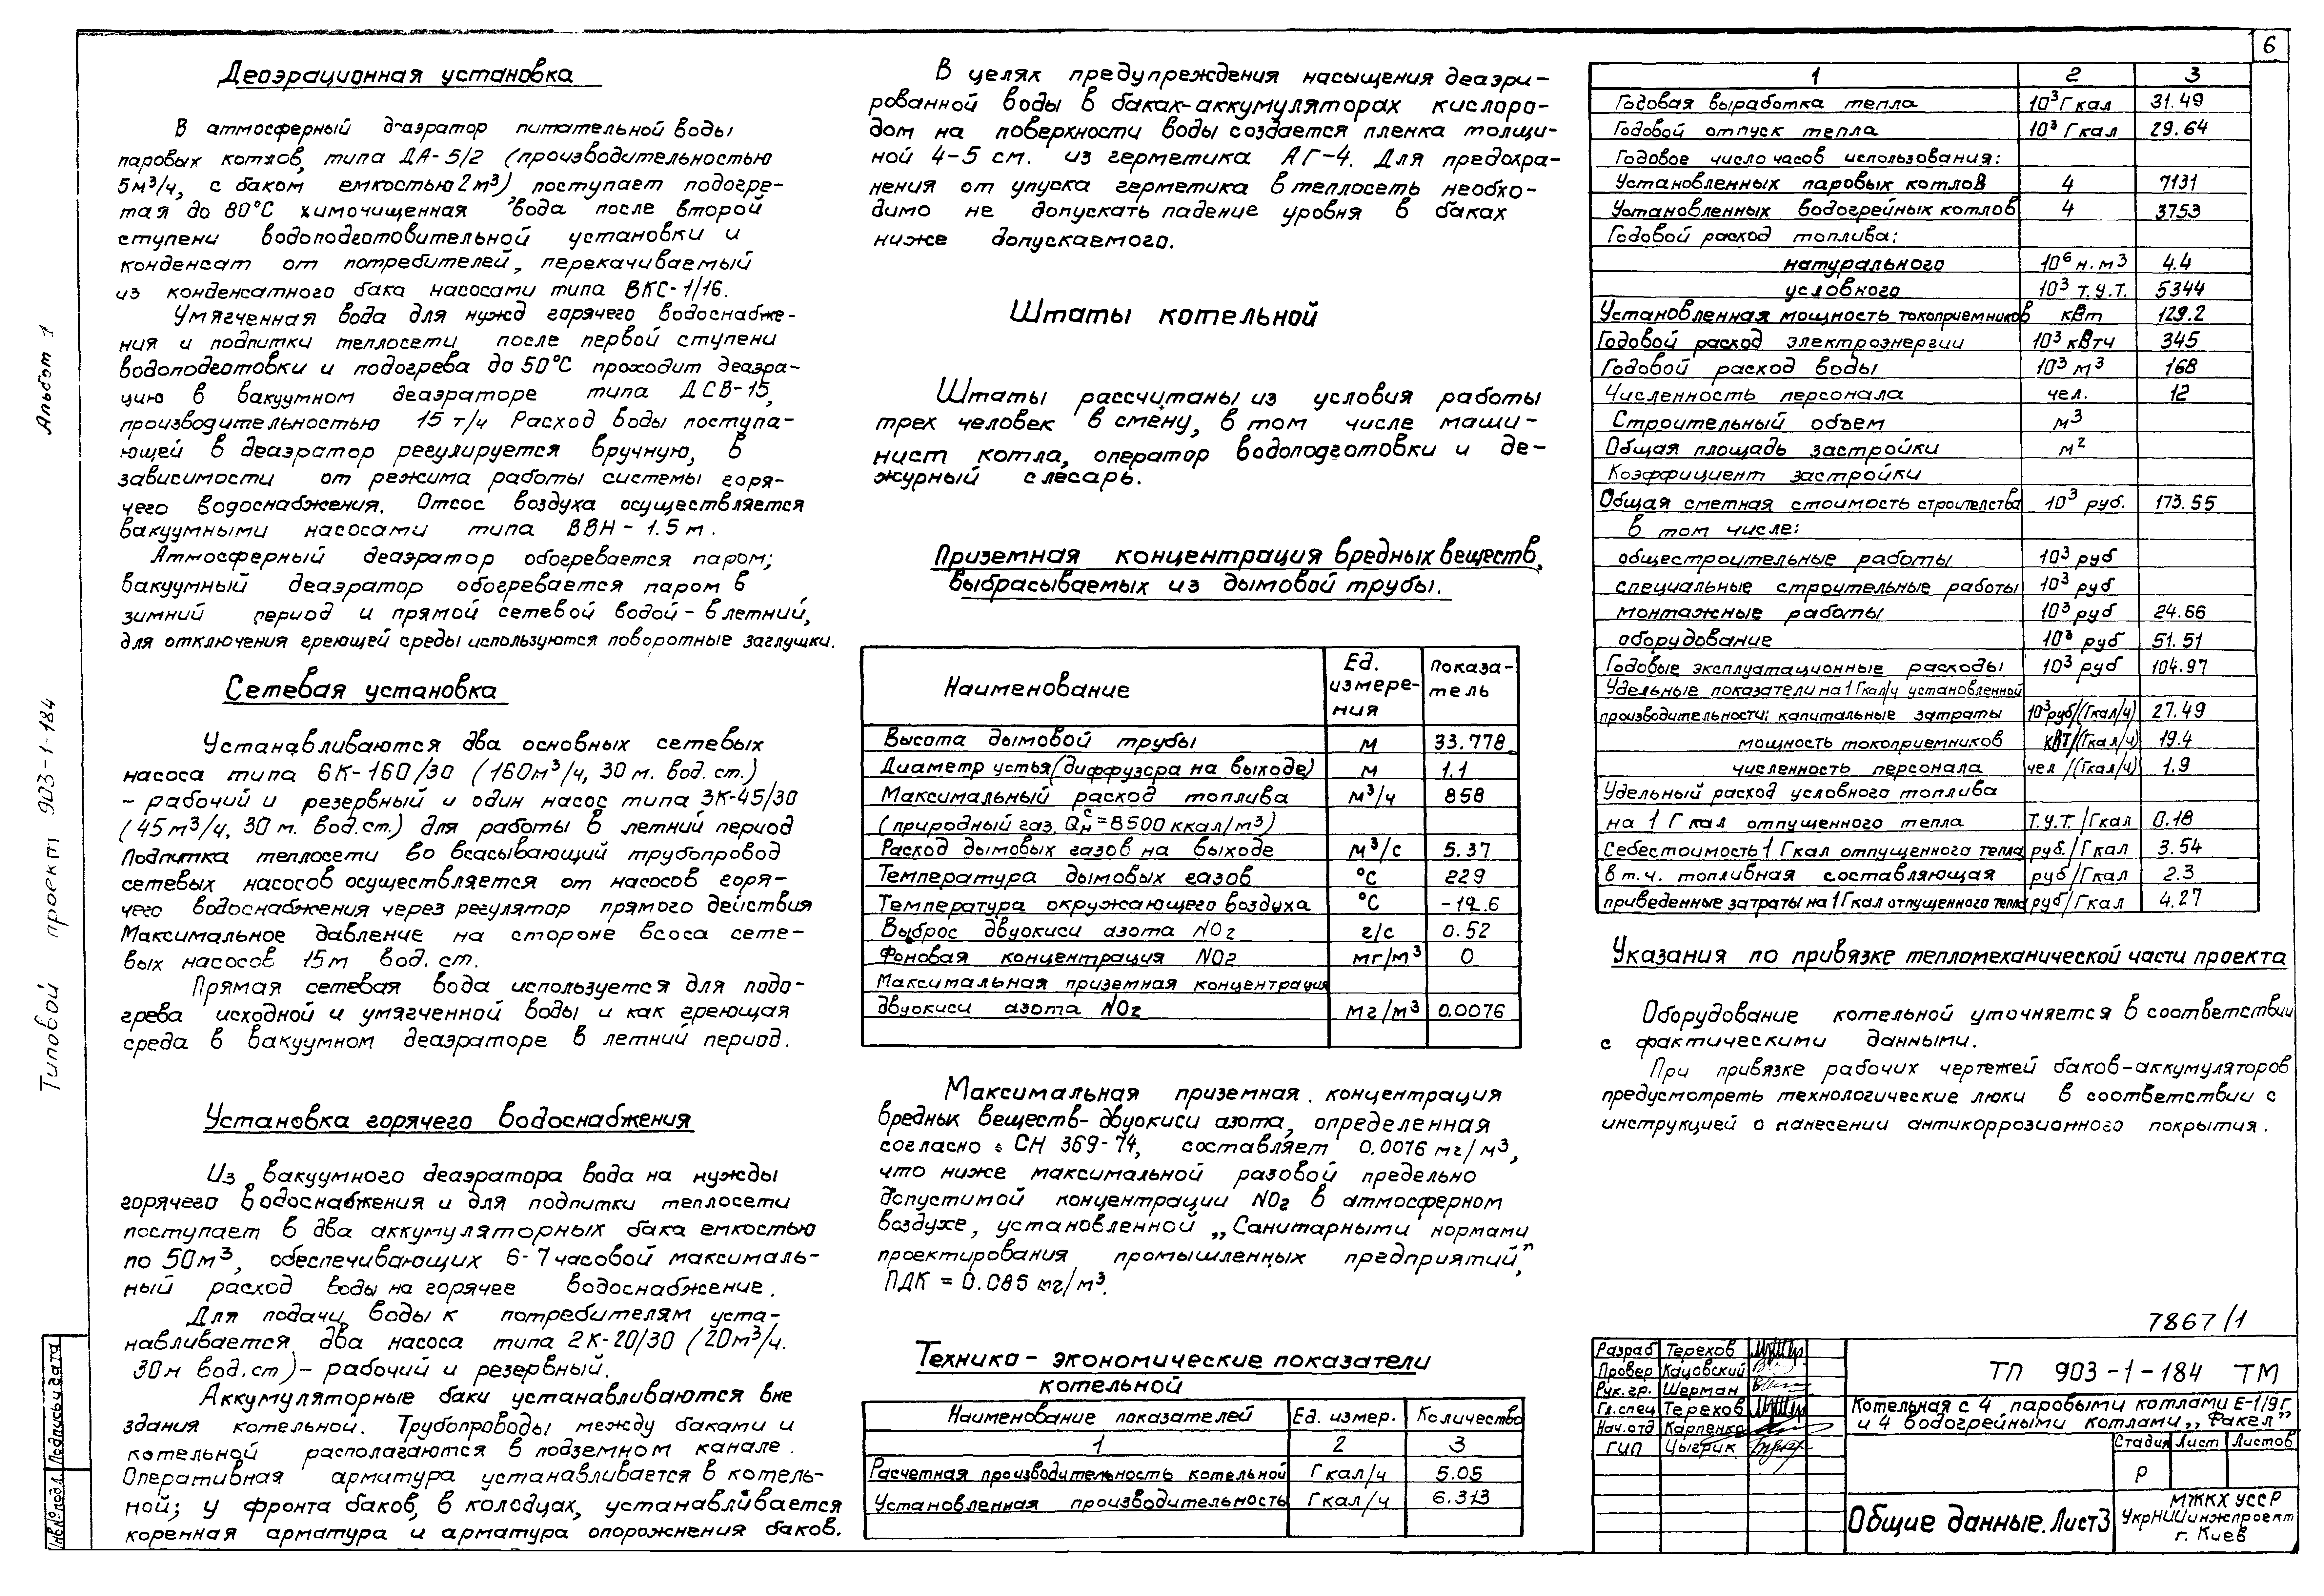 6
Деаэрационная установка
В атмосферный деаэратор питательной воды
паровых котлов, типа ДА-5/2 (производительностью
5м³/ч, с баком емкостью 2м³) поступает подогре-
тая до 80°С химочищенная вода после второй
ступени водоподготовительной установки и
конденсат от потребителей, перекачиваемый
из конденсатного бака насосами типа ВКС-1/16.
Умягченная вода для нужд горячего водоснабже-
ния и подпитки теплосети после первой ступени
водоподготовки и подогрева до 50°С проходит деаэра-
цию в вакуумном деаэраторе типа ДСВ-15,
производительностью 15 т/ч Расход воды поступа-
ющей в деаэратор регулируется вручную, в
зависимости от режима работы системы горя-
чего водоснабжения. Отсос воздуха осуществляется
вакуумными насосами типа ВВН-1.5м.
Атмосферный деаэратор обогревается паром;
вакуумный деаэратор обогревается паром в
зимний период и прямой сетевой водой - в летний,
для отключения греющей среды используются поворотные заглушки.
Сетевая установка
Устанавливаются два основных сетевых
насоса типа 6К-160/30 (160м³/ч, 30 м. вод. ст.)
- рабочий и резервный и один насос типа 3К-45/30
(45м³/ч, 30 м. вод. ст.) для работы в летний период
Подпитка теплосети во всасывающий трубопровод
сетевых насосов осуществляется от насосов горя-
чего водоснабжения через регулятор прямого действия
Максимальное давление на стороне всоса сете-
вых насосов 15м вод. ст.
Прямая сетевая вода используется для подо-
грева исходной и умягченной воды и как греющая
среда в вакуумном деаэраторе в летний период.
Установка горячего водоснабжения
Из вакуумного деаэратора вода на нужды
горячего водоснабжения и для подпитки теплосети
поступает в два аккумуляторных бака емкостью
по 50м³, обеспечивающих 6-7 часовой максималь-
ный расход воды на горячее водоснабжение.
Для подачи воды к потребителям уста-
навливается два насоса типа 2К-20/30 (20м³/ч.
30м вод. ст) - рабочий и резервный.
Аккумуляторные баки устанавливаются вне
здания котельной. Трубопроводы между баками и
котельной располагаются в подземном канале.
Оперативная арматура устанавливается в котель-
ной; у фронта баков, в колодцах, устанавливается
коренная арматура и арматура опорожнения баков.
В целях предупреждения насыщения деаэри-
рованной воды в баках-аккумуляторах кислоро-
дом на поверхности воды создается пленка толщи-
ной 4-5 см. из герметика АГ-4. Для предохра-
нения от упуска герметика в теплосеть необхо-
димо не допускать падение уровня в баках
ниже допускаемого.
Штаты котельной
Штаты рассчитаны из условия работы
трех человек в смену, в том числе маши-
нист котла, оператор водоподготовки и де-
журный слесарь.
Приземная концентрация вредных веществ,
выбрасываемых из дымовой трубы.
Наименование | Ед. измере-ния | Показа-тель
Высота дымовой трубы | м | 33.778
Диаметр устья (диффузора на выходе) | м | 1.1
Максимальный расход топлива | м³/ч | 858
(природный газ, Qнс=8500 ккал/м³)
Расход дымовых газов на выходе | м³/с | 5.37
Температура дымовых газов | °С | 229
Температура окружающего воздуха | °С | -12.6
Выброс двуокиси азота NO₂ | г/с | 0.52
Фоновая концентрация NO₂ | мг/м³ | 0
Максимальная приземная концентрация
двуокиси азота NO₂ | мг/м³ | 0.0076
Максимальная приземная концентрация
вредных веществ - двуокиси азота, определенная
согласно СН 369-74, составляет 0,0076 мг/м³,
что ниже максимальной разовой предельно
допустимой концентрации NO₂ в атмосферном
воздухе, установленной „Санитарными нормами
проектирования промышленных предприятий",
ПДК = 0.085 мг/м³.
Технико-экономические показатели
котельной
Наименование показателей | Ед. измер. | Количество
1 | 2 | 3
Расчетная производительность котельной | Гкал/ч | 5.05
Установленная производительность | Гкал/ч | 6.313
1 | 2 | 3
Годовая выработка тепла | 10³Гкал | 31.49
Годовой отпуск тепла | 10³ Гкал | 29.64
Годовое число часов использования:
Установленных паровых котлов | 4 | 7131
Установленных водогрейных котлов | 4 | 3753
Годовой расход топлива:
натурального | 10⁶ н.м³ | 4.4
условного | 10³ т.у.т. | 5344
Установленная мощность токоприемников | кВт | 129.2
Годовой расход электроэнергии | 10³ кВтч | 345
Годовой расход воды | 10³ м³ | 168
Численность персонала | чел. | 12
Строительный объем | м³
Общая площадь застройки | м²
Коэффициент застройки
Общая сметная стоимость строителства | 10³ руб. | 173.55
в том числе:
общестроительные работы | 10³ руб
специальные строительные работы | 10³ руб
монтажные работы | 10³ руб | 24.66
оборудование | 10³ руб | 51.51
Годовые эксплуатационные расходы | 10³ руб | 104.97
Удельные показатели на 1 Гкал/ч установленной
производительности: капитальные затраты | 10³руб/(Гкал/ч) | 27.49
мощность токоприемников | кВт/(Гкал/ч) | 19.4
численность персонала | чел/(Гкал/ч) | 1.9
Удельный расход условного топлива
на 1 Гкал отпущенного тепла | Т.У.Т./Гкал | 0.18
Себестоимость 1 Гкал отпущенного тепла | руб./Гкал | 3.54
в т.ч. топливная составляющая | руб/Гкал | 2.3
приведенные затраты на 1 Гкал отпущенного тепла | руб/Гкал | 4.27
Указания по привязке тепломеханической части проекта
Оборудование котельной уточняется в соответствии
с фактическими данными.
При привязке рабочих чертежей баков-аккумуляторов
предусмотреть технологические люки в соответствии с
инструкцией о нанесении антикоррозионного покрытия.
7867/1
Разраб Терехов
Провер Кацовский
Рук.гр. Шерман
Гл.спец Терехов
Нач.отд Карпенко
ГИП Цыгрик
ТП 903-1-184 ТМ
Котельная с 4 паровыми котлами Е-1/9г
и 4 водогрейными котлами „Факел"
Стадия Лист Листов
Р
Общие данные. Лист 3
МЖКХ УССР
УкрНИИинжпроект
г. Киев
Альбом 1
Типовой проект 903-1-184
Подпись и дата
Инв.№ подл.